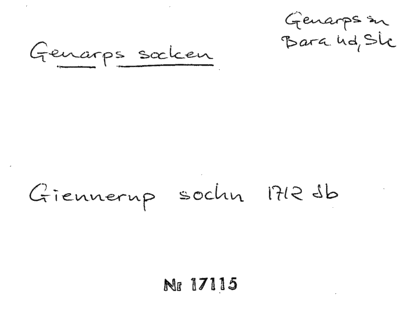 Genarps sn
Bara hd, Sk
Genarps socken
Giennerup sochn 1712 Jb
Nr 17115